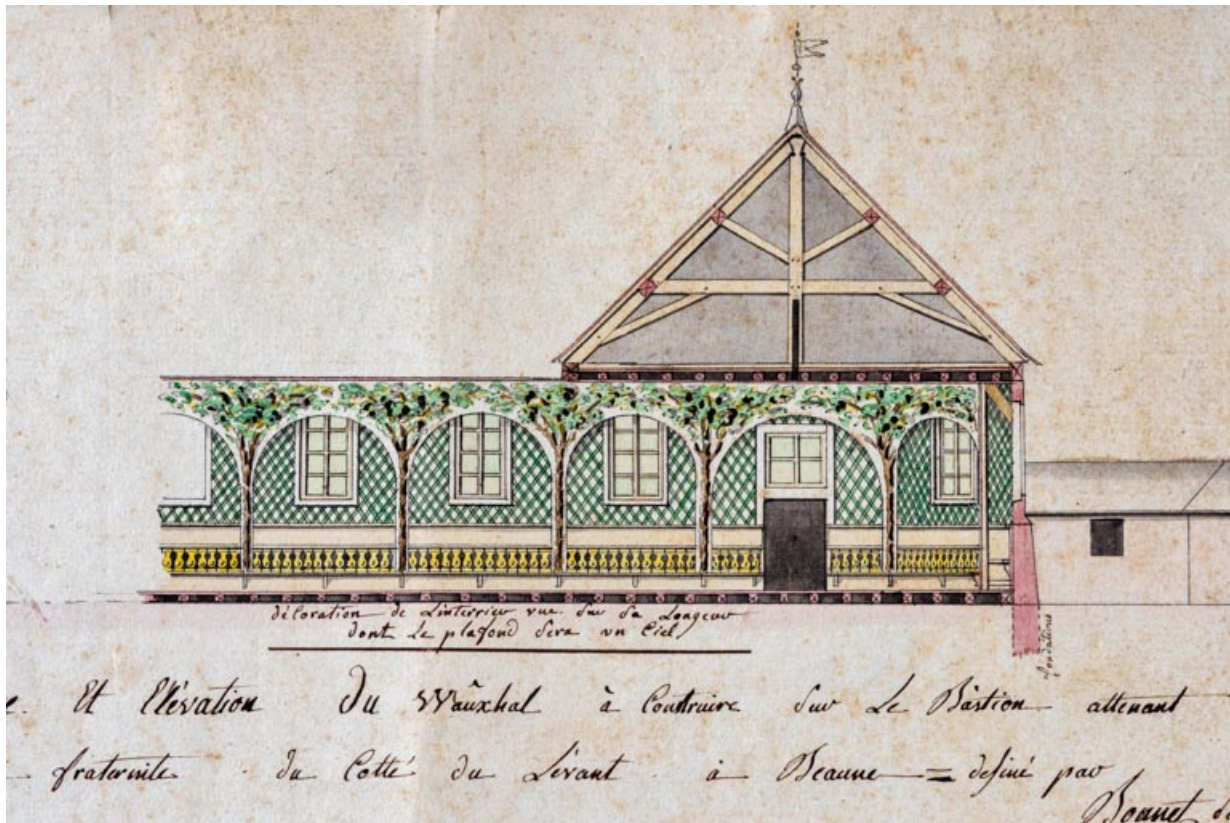 décoration de Linterrieu vue Sur Sa Longeur
dont Le plafond Sera un Ciel
fondations
e. Et Elévation du Wâuxhal à Construire Sur Le Bâstion attenant
fraternite du Cotté du Lévant à Beaune = desiné par
Bonnet